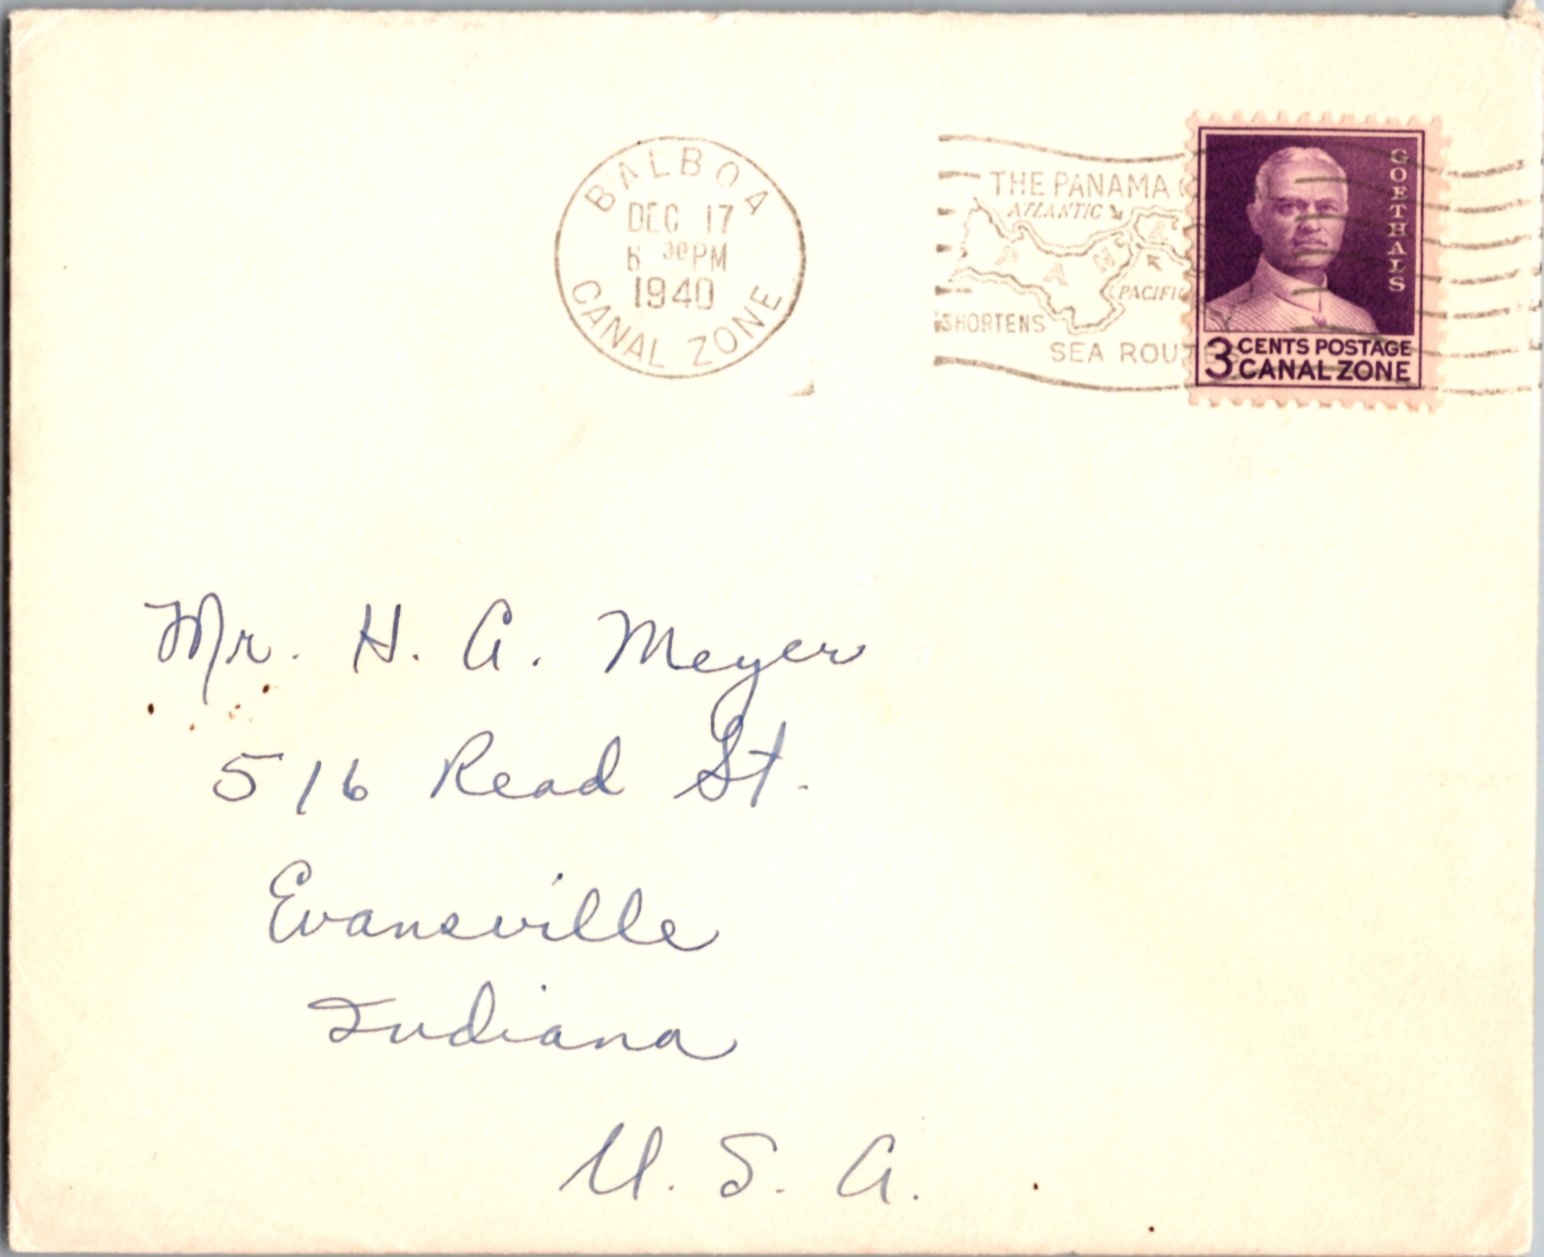 BALBOA
DEC 17
6 30 PM
1940
CANAL ZONE
THE PANAMA
ATLANTIC
PAN A
PACIFIC
SHORTENS
SEA ROUTES
GOETHALS
3 CENTS POSTAGE
CANAL ZONE
Mr. H. A. Meyer
516 Read St.
Evansville
Indiana
U. S. A.